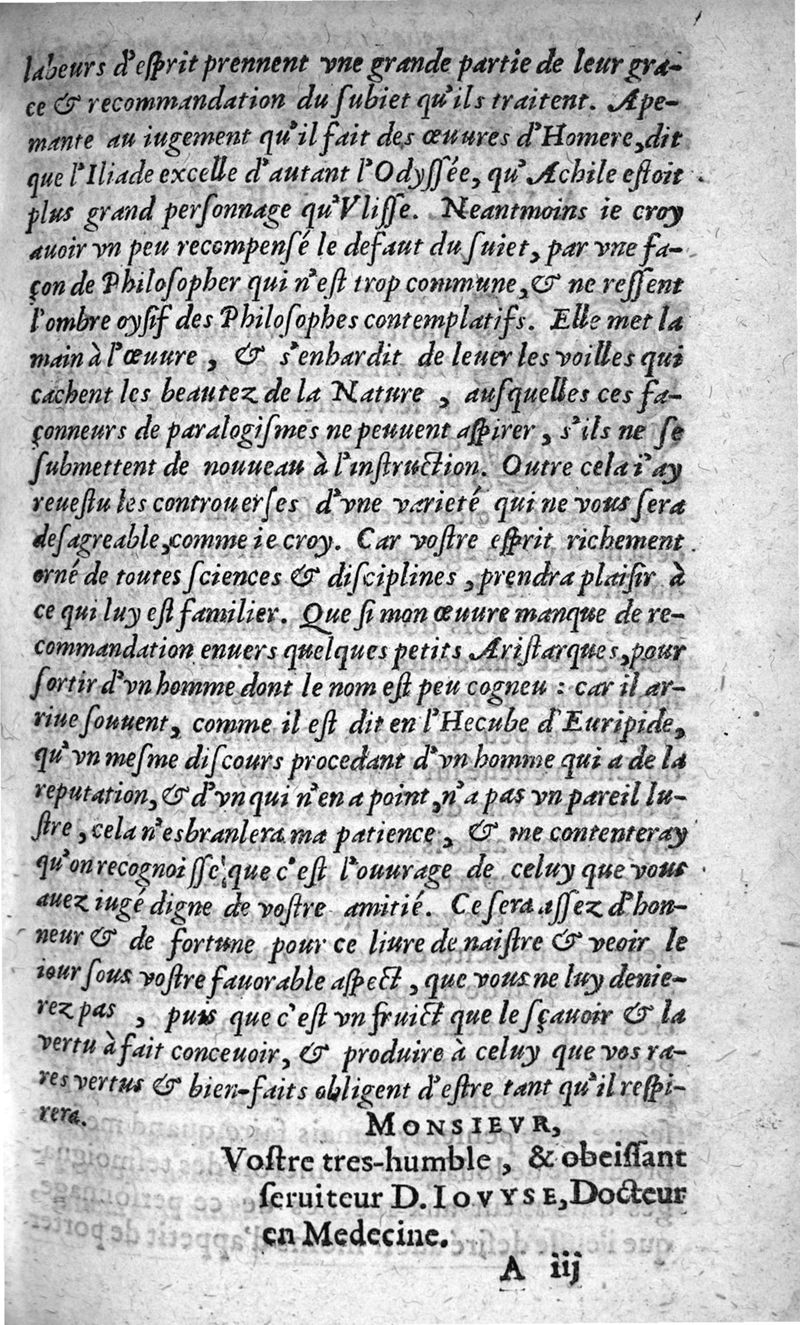 labeurs d'eſprit prennent vne grande partie de leur gra-
ce & recommandation du ſubiet qu'ils traitent. Ape-
mante au iugement qu'il fait des œuures d'Homere, dit
que l'Iliade excelle d'autant l'Odyſſée, qu'Achile eſtoit
plus grand perſonnage qu'Vliſſe. Neantmoins ie croy
auoir vn peu recompenſé le defaut du ſuiet, par vne fa-
çon de Philoſopher qui n'eſt trop commune, & ne reſſent
l'ombre oyſif des Philoſophes contemplatifs. Elle met la
main à l'œuure, & s'enhardit de leuer les voilles qui
cachent les beautez de la Nature, auſquelles ces fa-
çonneurs de paralogiſmes ne peuuent aſpirer, s'ils ne ſe
ſubmettent de nouueau à l'inſtruction. Outre cela i'ay
reueſtu les controuerſes d'vne varieté qui ne vous ſera
deſagreable, comme ie croy. Car voſtre eſprit richement
orné de toutes ſciences & diſciplines, prendra plaiſir à
ce qui luy eſt familier. Que ſi mon œuure manque de re-
commandation enuers quelques petits Ariſtarques, pour
ſortir d'vn homme dont le nom eſt peu cogneu : car il ar-
riue ſouuent, comme il eſt dit en l'Hecube d'Euripide,
qu'vn meſme diſcours procedant d'vn homme qui a de la
reputation, & d'vn qui n'en a point, n'a pas vn pareil lu-
ſtre, cela n'esbranlera ma patience, & me contenteray
qu'on recognoiſſe que c'eſt l'ouurage de celuy que vous
auez iugé digne de voſtre amitié. Ce ſera aſſez d'hon-
neur & de fortune pour ce liure de naiſtre & veoir le
iour ſous voſtre fauorable aſpect, que vous ne luy denie-
rez pas, puis que c'eſt vn fruict que le ſçauoir & la
vertu à fait conceuoir, & produire à celuy que vos ra-
res vertus & bien-faits obligent d'eſtre tant qu'il reſpi-
rera.
MONSIEVR,
Voſtre tres-humble, & obeiſſant
ſeruiteur D. IOVYSE, Docteur
en Medecine.
A iij